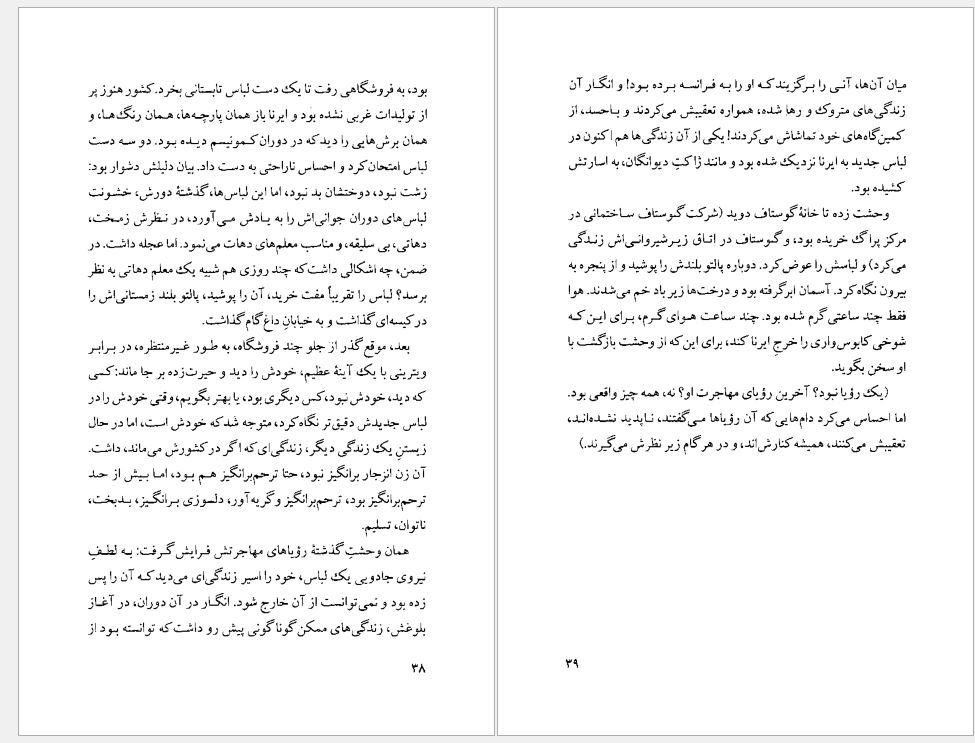 بود، به فروشگاهی رفت تا یک دست لباس تابستانی بخرد. کشور هنوز پر
از تولیدات غربی نشده بود و ایرنا باز همان پارچه‌ها، همان رنگ‌ها، و
همان برش‌هایی را دید که در دوران کمونیسم دیده بود. دو سه دست
لباس امتحان کرد و احساس ناراحتی به دست داد. بیان دلیلش دشوار بود:
زشت نبود، دوختشان بد نبود، اما این لباس‌ها، گذشتهٔ دورش، خشونت
لباس‌های دوران جوانی‌اش را به یادش می‌آورد، در نظرش زمخت،
دهاتی، بی سلیقه، و مناسب معلم‌های دهات می‌نمود. اما عجله داشت. در
ضمن، چه اشکالی داشت که چند روزی هم شبیه یک معلم دهاتی به نظر
برسد؟ لباس را تقریباً مفت خرید، آن را پوشید، پالتو بلند زمستانی‌اش را
در کیسه‌ای گذاشت و به خیابانِ داغ گام گذاشت.
بعد، موقع گذر از جلو چند فروشگاه، به طور غیرمنتظره، در برابر
ویترینی با یک آینهٔ عظیم، خودش را دید و حیرت‌زده بر جا ماند: کسی
که دید، خودش نبود، کس دیگری بود، یا بهتر بگویم، وقتی خودش را در
لباس جدیدش دقیق‌تر نگاه کرد، متوجه شد که خودش است، اما در حال
زیستنِ یک زندگی دیگر، زندگی‌ای که اگر در کشورش می‌ماند، داشت.
آن زن انزجار برانگیز نبود، حتا ترحم‌برانگیز هم بود، اما بیش از حد
ترحم‌برانگیز بود، ترحم‌برانگیز و گریه‌آور، دلسوزی برانگیز، بدبخت،
ناتوان، تسلیم.
همان وحشتِ گذشتهٔ رؤیاهای مهاجرتش فرایش گرفت: به لطفِ
نیروی جادویی یک لباس، خود را اسیر زندگی‌ای می‌دید که آن را پس
زده بود و نمی‌توانست از آن خارج شود. انگار در آن دوران، در آغاز
بلوغش، زندگی‌های ممکن گوناگونی پیش رو داشت که توانسته بود از
۳۸
میان آن‌ها، آنی را برگزیند که او را به فرانسه برده بود! و انگار آن
زندگی‌های متروک و رها شده، همواره تعقیبش می‌کردند و باحسد، از
کمین‌گاه‌های خود تماشاش می‌کردند! یکی از آن زندگی‌ها هم اکنون در
لباس جدید به ایرنا نزدیک شده بود و مانند ژاکتِ دیوانگان، به اسارتش
کشیده بود.
وحشت زده تا خانهٔ گوستاف دوید (شرکت گوستاف ساختمانی در
مرکز پراگ خریده بود، و گوستاف در اتاق زیرشیروانی‌اش زندگی
می‌کرد) و لباسش را عوض کرد. دوباره پالتو بلندش را پوشید و از پنجره به
بیرون نگاه کرد. آسمان ابر گرفته بود و درخت‌ها زیر باد خم می‌شدند. هوا
فقط چند ساعتی گرم شده بود. چند ساعت هوای گرم، برای این که
شوخی کابوس‌واری را خرجِ ایرنا کند، برای این‌که از وحشت بازگشت با
او سخن بگوید.
(یک رؤیا نبود؟ آخرین رؤیای مهاجرت او؟ نه، همه چیز واقعی بود.
اما احساس می‌کرد دام‌هایی که آن رؤیاها می‌گفتند، ناپدید نشده‌اند،
تعقیبش می‌کنند، همیشه کنارش‌اند، و در هر گام زیر نظرش می‌گیرند.)
۳۹